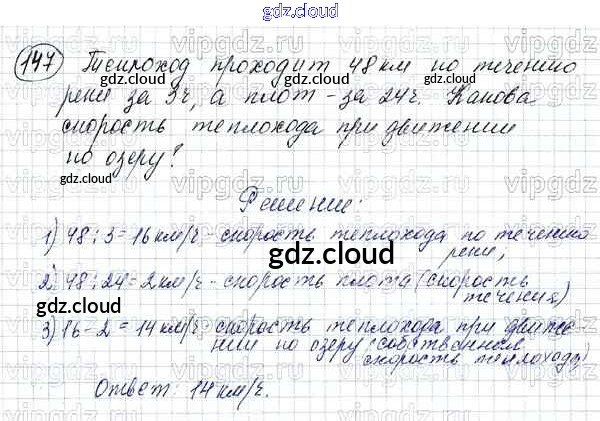 gdz.cloud
147 Теплоход проходит 48 км по течению
gdz.cloud
реки за 3ч, а плот - за 24ч. Какова
скорость теплохода при движении
по озеру?
gdz.cloud
Решение:
1) 48 : 3 = 16 км/ч - скорость теплохода по течению
реки;
gdz.cloud
2) 48 : 24 = 2 км/ч - скорость плота (скорость
течения)
gdz.cloud
3) 16 - 2 = 14 км/ч скорость теплохода при движе-
нии по озеру (собственная
скорость теплохода)
Ответ: 14 км/ч.
gdz.cloud